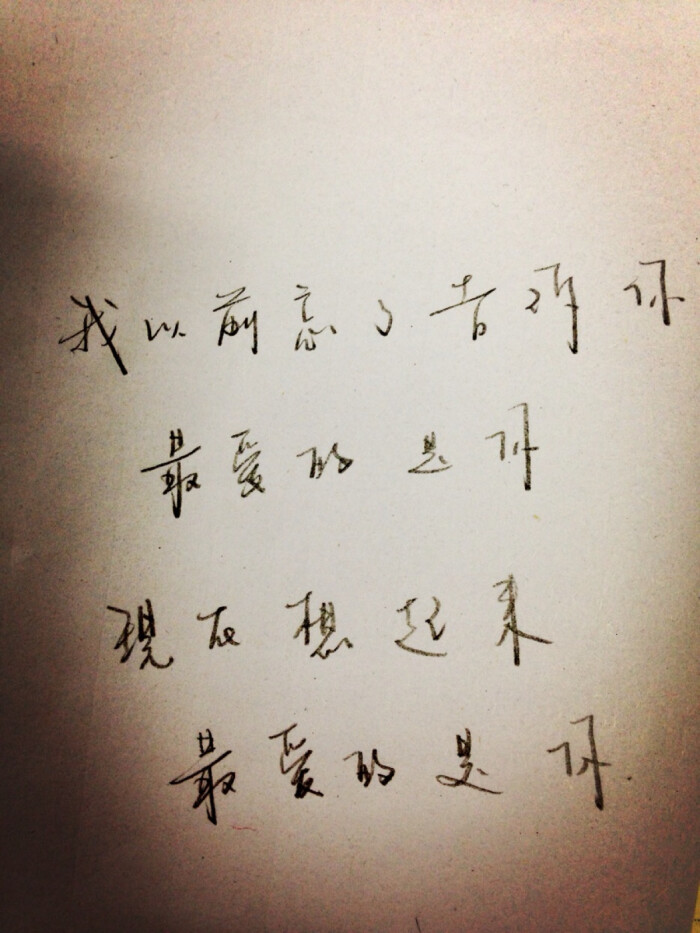 我以前忘了告訴你
最愛的是你
現在想起來
最愛的是你